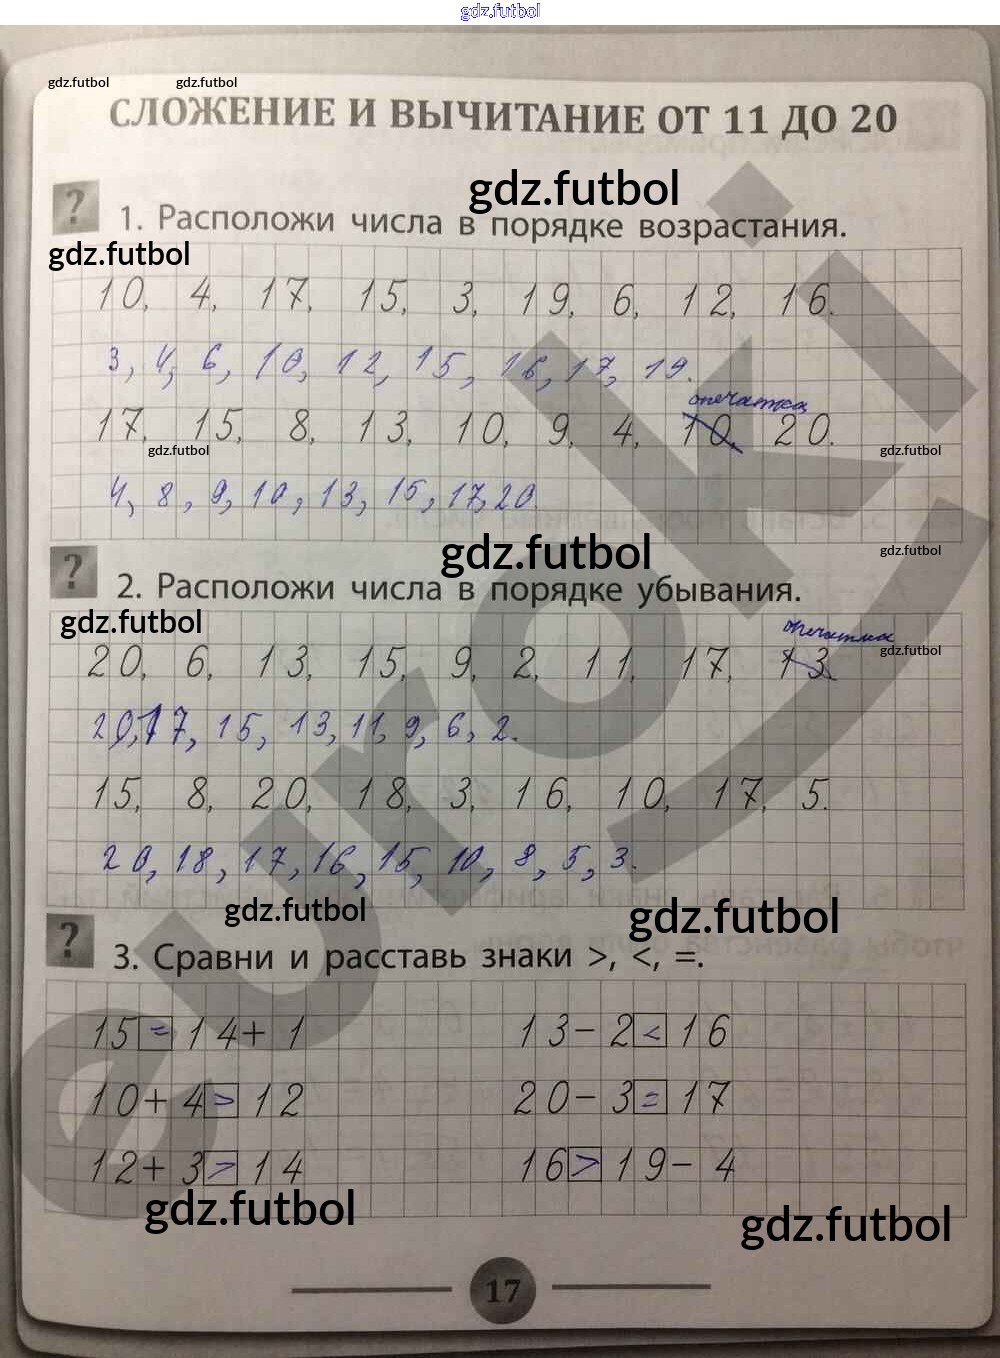 gdz.futbol
gdz.futbol gdz.futbol
СЛОЖЕНИЕ И ВЫЧИТАНИЕ ОТ 11 ДО 20
gdz.futbol
? 1. Расположи числа в порядке возрастания.
gdz.futbol
10, 4, 17, 15, 3, 19, 6, 12, 16.
3, 4, 6, 10, 12, 15, 16, 17, 19.
опечатка
17, 15, 8, 13, 10, 9, 4, 10, 20.
gdz.futbol gdz.futbol
4, 8, 9, 10, 13, 15, 17, 20.
gdz.futbol gdz.futbol
? 2. Расположи числа в порядке убывания.
gdz.futbol
опечатка
20, 6, 13, 15, 9, 2, 11, 17, 13
gdz.futbol
20, 17, 15, 13, 11, 9, 6, 2.
15, 8, 20, 18, 3, 16, 10, 17, 5.
20, 18, 17, 16, 15, 10, 8, 5, 3.
gdz.futbol gdz.futbol
? 3. Сравни и расставь знаки >, <, =.
15 = 14 + 1 13 − 2 < 16
10 + 4 > 12 20 − 3 = 17
12 + 3 > 14 16 > 19 − 4
gdz.futbol gdz.futbol
17
euroki